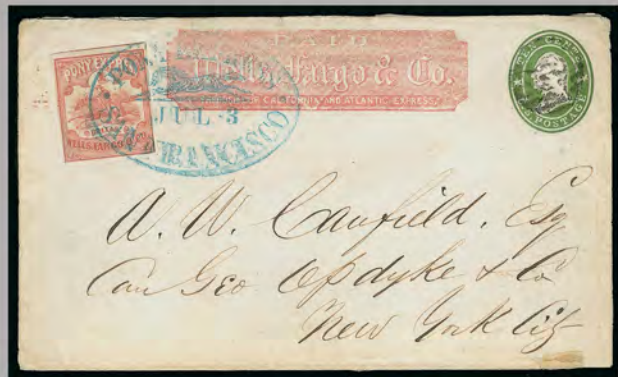 PAID
Wells, Fargo & Co.
OVER CALIFORNIA AND ATLANTIC EXPRESS
PONY EXPRESS
WELLS, FARGO & CO
PONY EXPRESS
JUL 3
SAN FRANCISCO
TEN CENTS
U.S. POSTAGE
A. W. Canfield. Esq
Care Geo Opdyke & Co
New York City